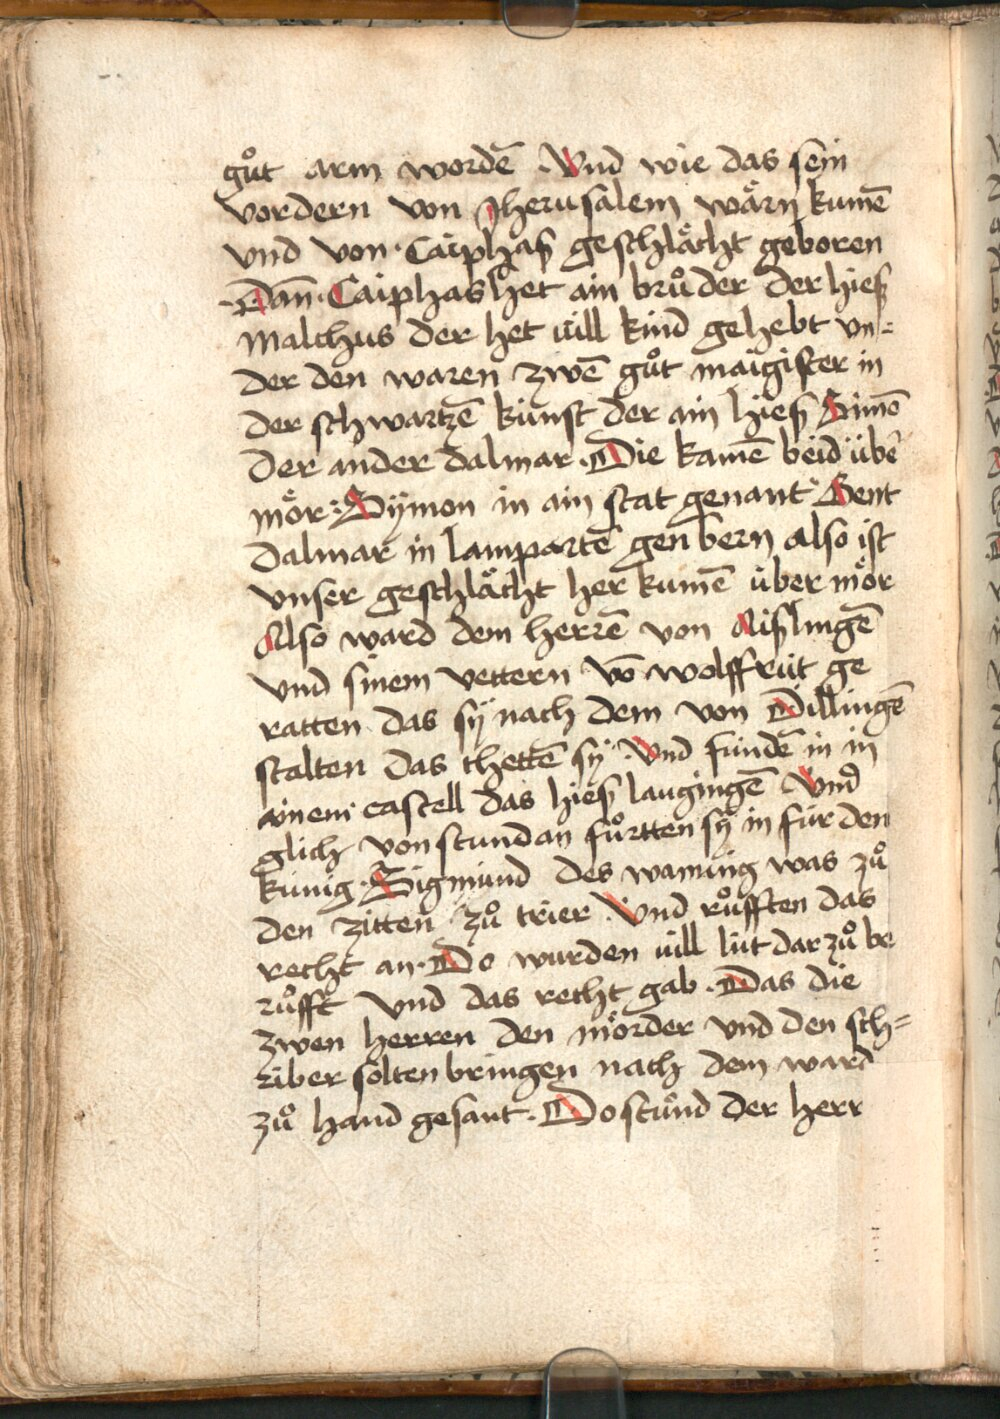 gůt arm wordē · Vnd wie das sein
vordern von Jherusalem wärn kumē
vnd von · Caiphas geschlächt geboren
· Dan̄ · Caiphas het ain brůder der hieß
Malchus der het vill kind gehebt vn=
der den waren zwē gůt maigister in
der schwartzē kunst der ain hieß Simō
der ander dalmar · Die kamē beid übē
mör : Sÿmon in ain stat genant Gent
dalmar in lamparte͞ gen bern also ist
vnser geschlächt her kumē über mör
Also ward dem herrē von Aißlingē
vnd sinem vettern vō wolffrüt ge
ratten das sÿ nach dem von Dillingē
stalten das thettē sÿ · Vnd fundē in in
ainem castell das hieß laugingē Vnd
glich von stund an fůrtten sÿ in für den
künig · Sigmund des wanung was zů
den zitten zů trier · Vnd růfften das
recht an · Do wurden vill lüt dar zů be
růfft vnd das recht gab · Das die
zwen herren den mörder vnd den sch=
riber solten bringen nach dem ward
zů hand gesant · Do stůnd der herr